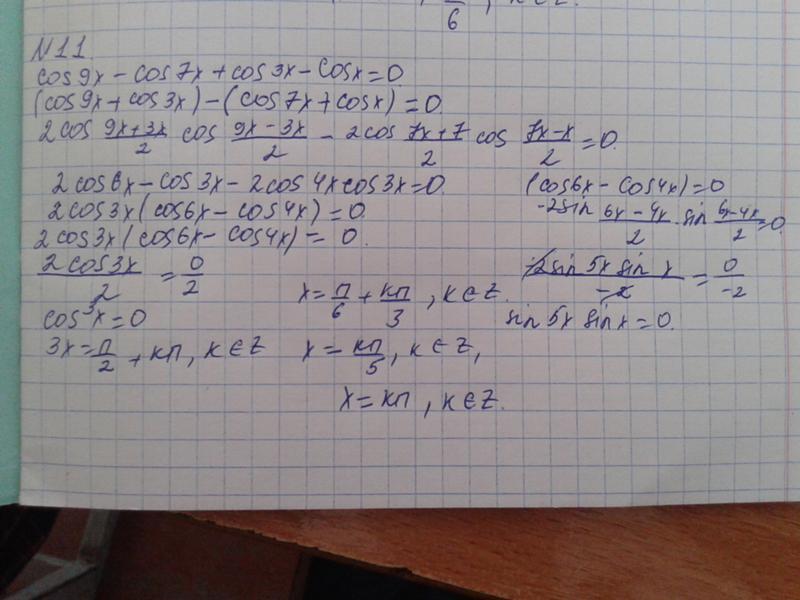 6 , к∈Z.
N11.
cos9x - cos7x + cos3x - cosx = 0
(cos9x + cos3x) - (cos7x + cosx) = 0.
2cos (9x+3x)/2 cos (9x-3x)/2 - 2cos (7x+7)/2 cos (7x-x)/2 = 0.
2cos6x - cos3x - 2cos4xcos3x = 0.
2cos3x(cos6x - cos4x) = 0.
2cos3x(cos6x - cos4x) = 0.
2cos3x/2 = 0/2
cos3x = 0
3x = п/2 + кп, к∈Z
x = п/6 + кп/3 , к∈Z.
x = кп/5 , к∈Z,
x = кп , к∈Z.
(cos6x - cos4x) = 0
-2sin (6x-4x)/2 · sin (6x-4x)/2 = 0
-2sin5x sinx/-2 = 0/-2
sin5x sinx = 0.